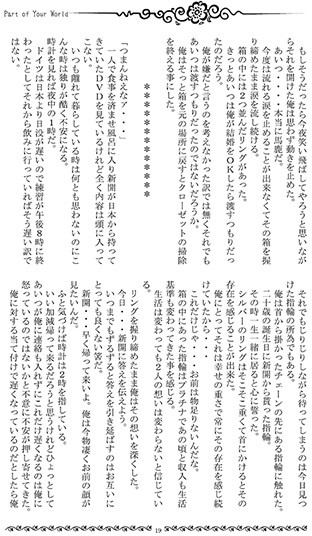 Part of Your World
もしそうだったら今夜笑い飛ばしてやろうと思いなが
らそれを開けた俺は思わず動きを止めた。
「あいつ・・・本当に馬鹿だ。」
今度は流れる涙を止めることが出来なくてその箱を握
り締めたまま涙を流し続ける。
箱の中には2つ並んだリングがあった。
きっとあいつは俺が結婚をOKしたら渡すつもりだっ
たのだろう。
俺が嫌だと言うのを考えなかった訳では無くそれでも
あいつは渡すつもりだったのではないだろうか。
俺はその箱を元の場所に戻すとクローゼットの掃除
を終える事にした。
＊＊＊＊＊＊＊＊＊＊＊＊
「つまんねえなァ・・・」
一人で食事を済ませ風呂に入り新開が日本から持って
きていたDVDを見ているけれど全く内容は頭に入って
こない。
いつも離れて暮らしている時は何とも思わないのにこ
んな時は独りが酷く不安になる。
時計を見れば夜中の1時だ。
ドイツは日本より日没が遅いので練習が午後8時に終
わったとしてそれから飲みに行っていればそう遅い訳で
はない。
それでもじりじりしながら待ってしまうのは今日見つ
けた指輪の所為でもある。
俺は首から掛けたチェーンの先にある指輪に触れた。
二十歳の誕生日に新開から貰った指輪。
その時一生一緒に居ると心に誓った。
シルバーのリングはそこそこ重くて首にかけるとその
存在を感じることが出来た。
俺にとってそれは幸せの重さで常にその存在を感じ続
けていたから・・・
「これだけじゃ・・・お前は物足りないんだな。」
箱の中にあった指輪はプラチナであの頃と収入も生活
基準も変わってきた事を感じる。
生活は変わっても2人の想いは変わらないと信じてい
る。
リングを握り締めたまま俺はその想いを深くした。
今日・・・新開に答えを伝えよう。
いつまでもずるずると答えを引き延ばすのはお互いに
とっても良くない筈だ。
新開・・・早く帰って来いよ。俺は今物凄くお前の顔が
見たいんだ。
ふと気づけば時計は2時を指している。
いい加減帰って来るだろうと思うけれどひょっとして
あいつが俺に連絡も入れずにこれだけ遅くなるのは俺に
怒っているのではないかと不意に不安が押し寄せてきた。
俺に対する当て付けで遅くなっているのだとしたら俺
19